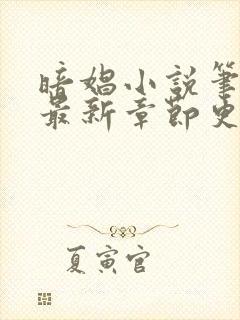 暗娼小説筆
最新章節史
夏寅官